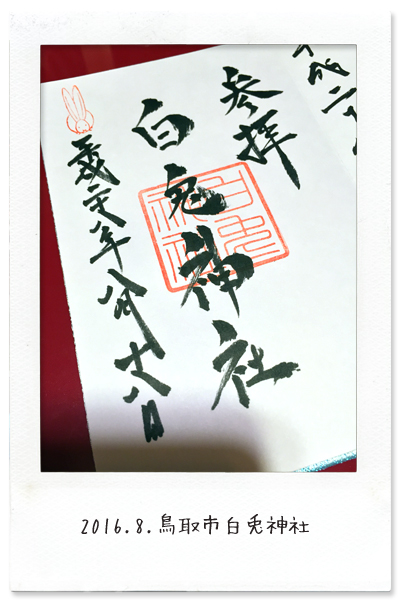 成二
参拝
白兎神社
白兎神社
年八月十八日
2016.8.鳥取市白兎神社